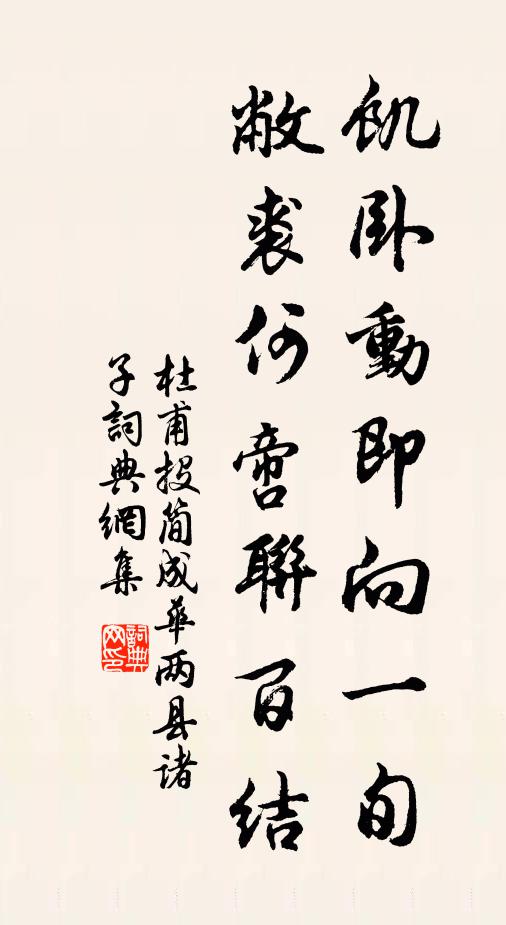 飢卧動即向一旬
敝裘何啻聯百结
杜甫投简成華两县诸
子詞典網集
詞典网印